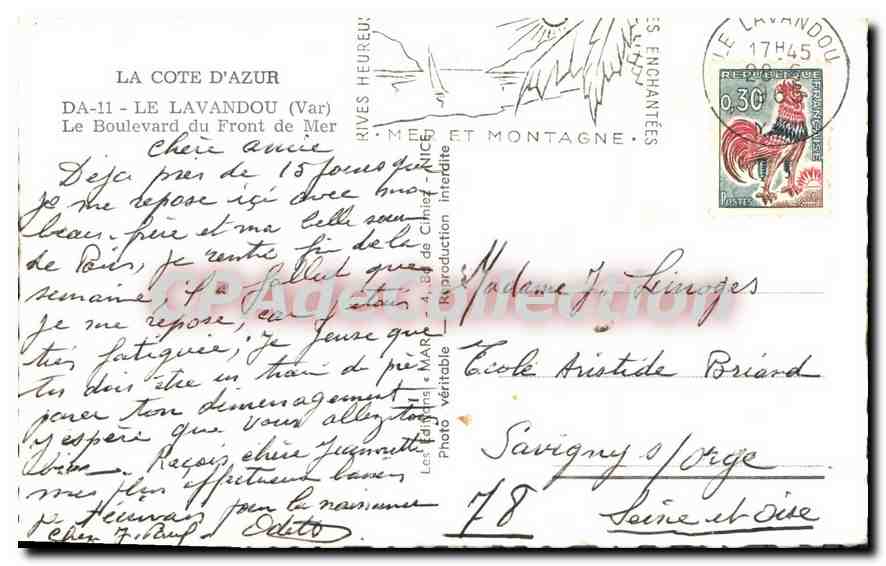 LA COTE D'AZUR
DA-11 - LE LAVANDOU (Var)
Le Boulevard du Front de Mer
RIVES HEUREUS
ES ENCHANTÉES
· MER ET MONTAGNE ·
LE LAVANDOU
17H45
REPUBLIQUE
FRANÇAISE
0,30
POSTES
Chère amie
Déja près de 15 jours que
je me repose içi avec mon
beau-frère et ma belle soeur
de Paris, je rentre fin de la
semaine, il a fallut que
je me repose, car j'étais
très fatiguée, je pense que
tu dois être en train de pré-
parer ton déménagement
j'espère que vous allez tous
bien. Reçois chère Jeannette
mes plus affectueux baisers
je t'écrivai pour la naissance
chez J. Paul. Odette
Les Editions « MAR » - 4, Bd de Cimiez - NICE
Photo véritable — Reproduction interdite
Madame J. Limoges
Ecole Aristide Briand
Savigny s/Orge
78 Seine et Oise
CPAdeCollection